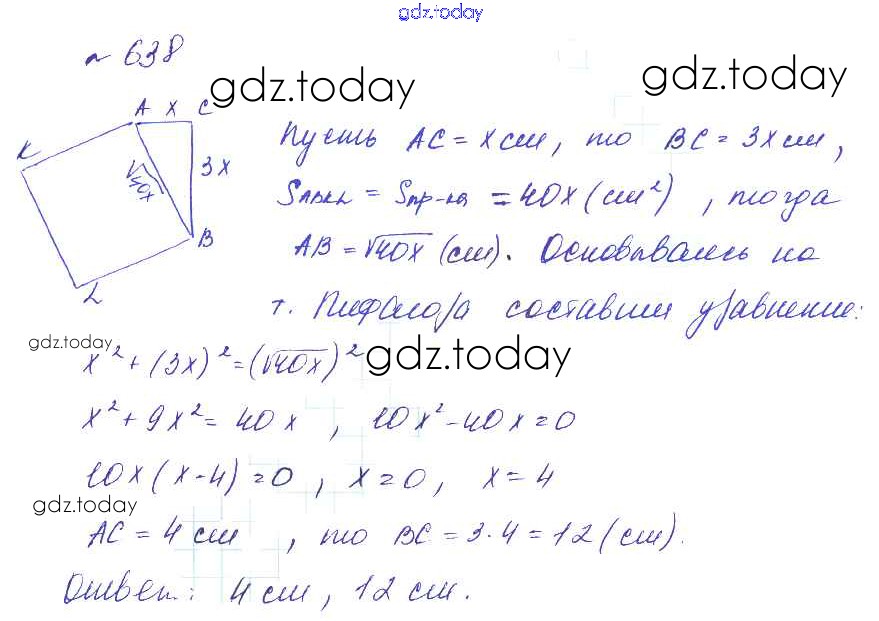 gdz.today
№ 638
gdz.today
gdz.today
A x C
K
3x
√40x
B
L
Пусть AC = x см, то BC = 3x см,
SABKL = Sпр-ка = 40x (см²), тогда
AB = √40x (см). Основываясь на
т. Пифагора составим уравнение:
gdz.today
x² + (3x)² = (√40x)²
gdz.today
x² + 9x² = 40x, 10x² - 40x = 0
10x (x - 4) = 0, x = 0, x = 4
gdz.today
AC = 4 см, то BC = 3·4 = 12 (см).
Ответ: 4 см, 12 см.